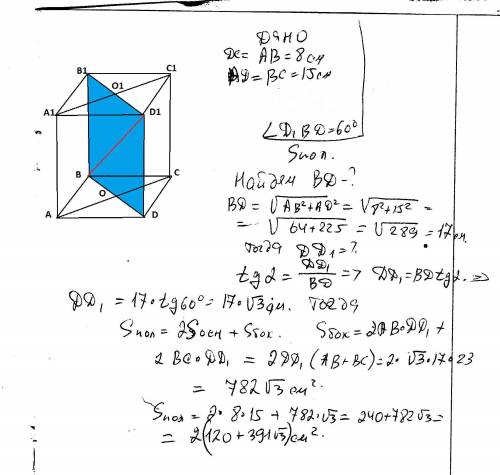 B1 C1
O1
A1 D1
B C
O
A D
ДАНО
DC = AB = 8 см
AD = BC = 15 см
∠D₁BD = 60°
Sпол.
Найдем BD - ?
BD = √AB²+AD² = √8²+15² =
= √64+225 = √289 = 17 см.
тогда DD₁ = ?
tg2 = DD₁/BD => DD₁ = BD tg2. =>
DD₁ = 17·tg60° = 17·√3 тогда
Sпол = 2Sосн + Sбок. Sбок = 2AB·DD₁ +
2BC·DD₁ = 2DD₁(AB+BC) = 2·√3·17·23
= 782√3 см².
Sпол = 2·8·15 + 782·√3 = 240+782√3 =
= 2(120+391√3) см².